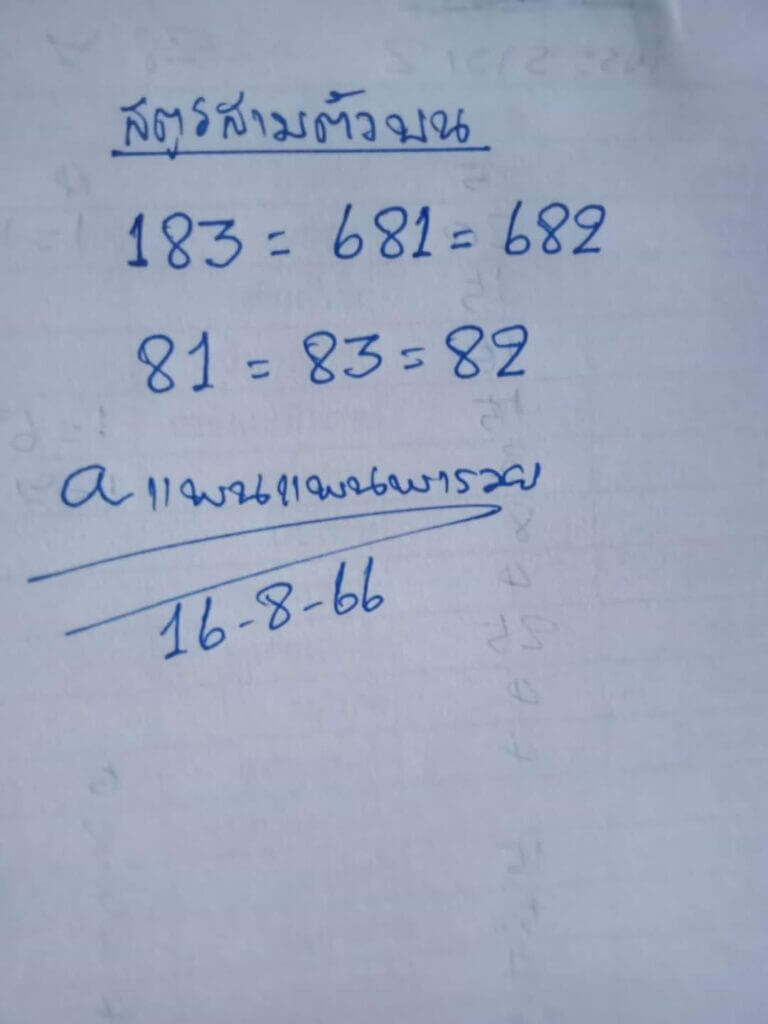 สูตรสามตัวบน
183 = 681 = 682
81 = 83 = 82
a แพนแพนพารวย
16-8-66